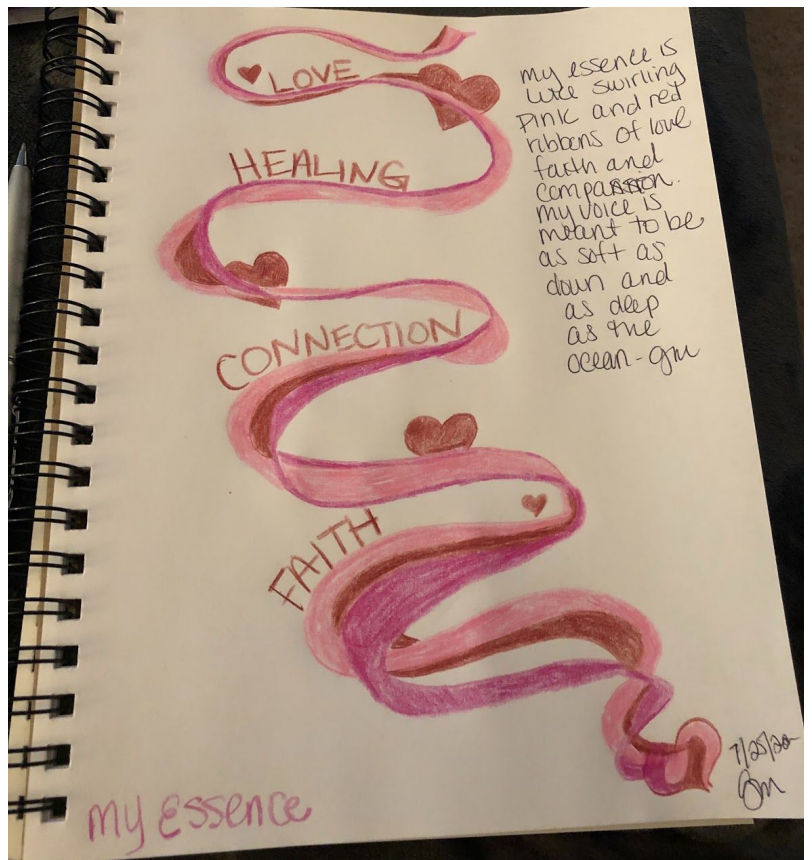 LOVE
HEALING
CONNECTION
FAITH
my essence is
like swirling
pink and red
ribbons of love
faith and
compassion.
my voice is
meant to be
as soft as
down and
as deep
as the
ocean - gm
7/25/20
gm
my Essence